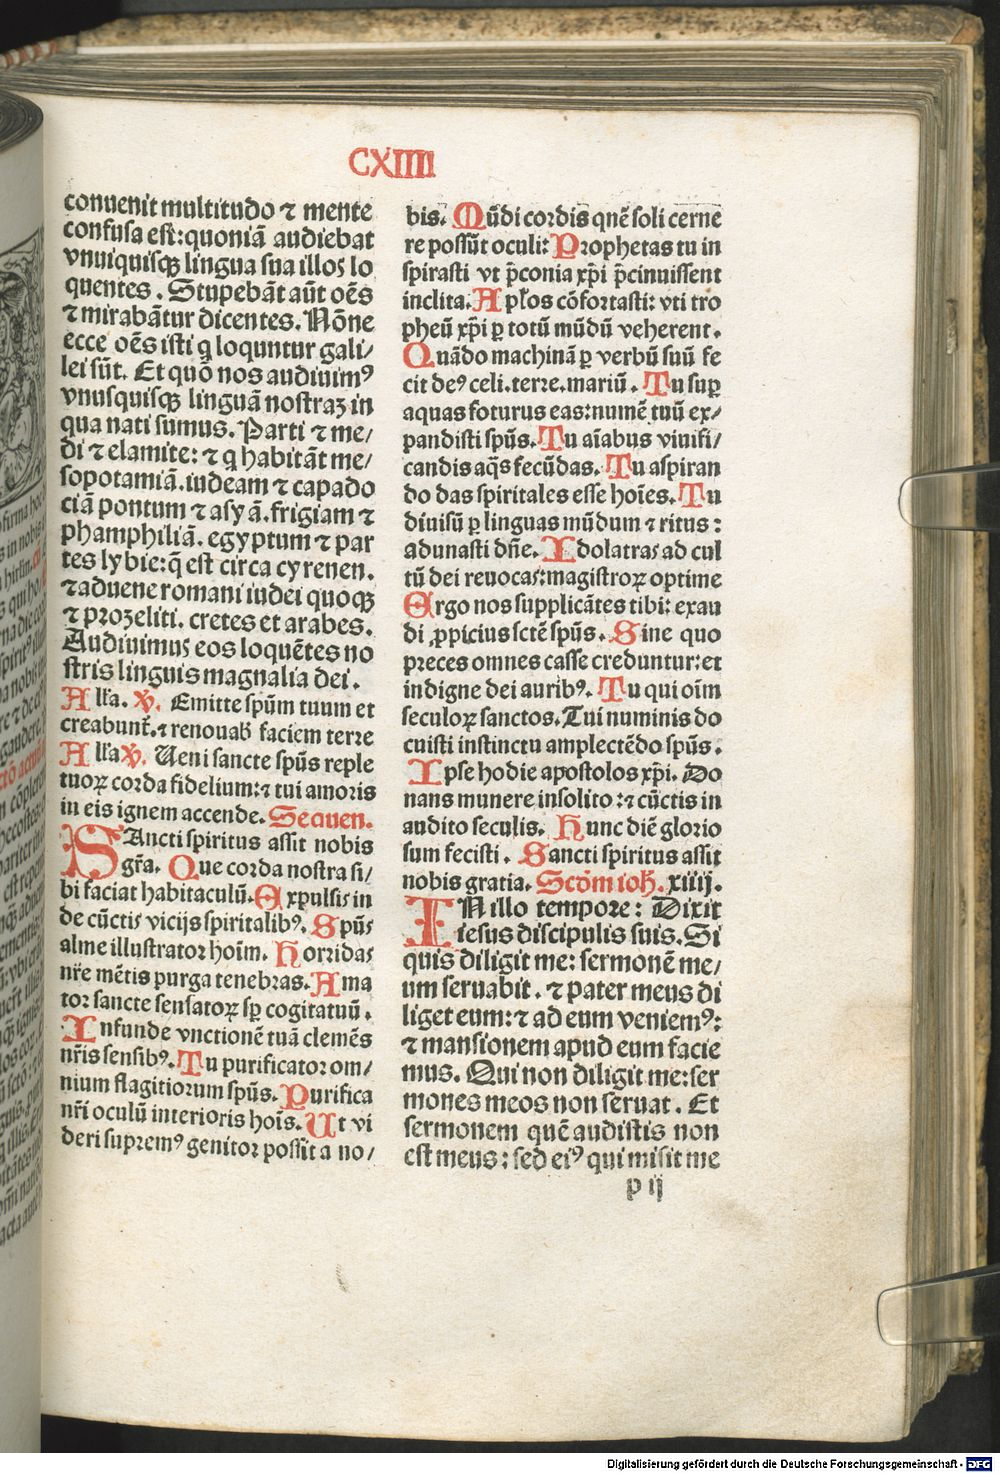 CXIIII
conuenit multitudo ⁊ mente
confusa est: quoniā audiebat
vnuſquiſqꝫ lingua sua illos lo
quentes. Stupebāt aūt oēs
⁊ mirabātur dicentes. Nōne
ecce oēs isti q loquuntur gali/
lei sūt. Et quō nos audiuimꝰ
vnusquisqꝫ linguā nostraꝫ in
qua nati sumus. Parti ⁊ me/
di ⁊ elamite: ⁊ q habitāt me/
sopotamiā. iudeam ⁊ capado
ciā pontum ⁊ asyā. frigiam ⁊
phamphiliā. egyptum ⁊ par
tes lybie: q̄ est circa cyrenen.
⁊ aduene romani iudei quoqꝫ
⁊ prozeliti. cretes et arabes.
Audiuimus eos loquētes no
stris linguis magnalia dei.
Alľa. ꝟ. Emitte spūm tuum et
creabunť. ⁊ renouab̄ faciem terre
Alľa ꝟ. Ueni sancte spūs reple
tuoꝝ corda fidelium: ⁊ tui amoris
in eis ignem accende. Sequen.
SAncti spiritus assit nobis
gr̄a. Que corda nostra si/
bi faciat habitaculū. Expulsis in
de cūctis vicijs spiritalibꝰ. Spūs
alme illustrator hoīm. Horridas
nr̄e mētis purga tenebras. Ama
tor sancte sensatoꝝ sꝑ cogitatuū.
Infunde vnctionē tuā clemēs
nr̄is sensibꝰ. Tu purificator om/
nium flagitiorum spūs. Purifica
nr̄i oculū interioris hoīs. Ut vi
deri supremꝰ genitor possit a no/
bis. Mūdi cordis quē soli cerne
re possūt oculi: Prophetas tu in
spirasti vt p̄conia xp̄i p̄cinuissent
inclita. Apľos cōfortasti: vti tro
pheū xp̄i ꝑ totū mūdū veherent.
Quādo machinā ꝑ verbū suū fe
cit deꝰ celi. terre. mariū. Tu suꝑ
aquas foturus eas: numē tuū ex/
pandisti spūs. Tu aīabus viuifi/
candis aq̄s fecūdas. Tu aspiran
do das spiritales esse hoīes. Tu
diuisū ꝑ linguas mūdum ⁊ ritus:
adunasti dn̄e. Idolatras ad cul
tū dei reuocas: magistroꝝ optime
Ergo nos supplicātes tibi: exau
di ꝓpicius sctē spūs. Sine quo
preces omnes casse creduntur: et
indigne dei auribꝰ. Tu qui oīm
seculoꝝ sanctos. Tui numinis do
cuisti instinctu amplectēdo spūs.
Ipse hodie apostolos xp̄i. Do
nans munere insolito: ⁊ cūctis in
audito seculis. Hunc diē glorio
sum fecisti. Sancti spiritus assit
nobis gratia. Scd̄m ioh̄. xiiij.
IN illo tempore: Dixit
iesus discipulis suis. Si
quis diligit me: sermonē me/
um seruabit. ⁊ pater meus di
liget eum: ⁊ ad eum veniemꝰ:
⁊ mansionem apud eum facie
mus. Qui non diligit me: ser
mones meos non seruat. Et
sermonem quē audistis non
est meus: sed eiꝰ qui misit me
p ij
Digitalisierung gefördert durch die Deutsche Forschungsgemeinschaft - DFG